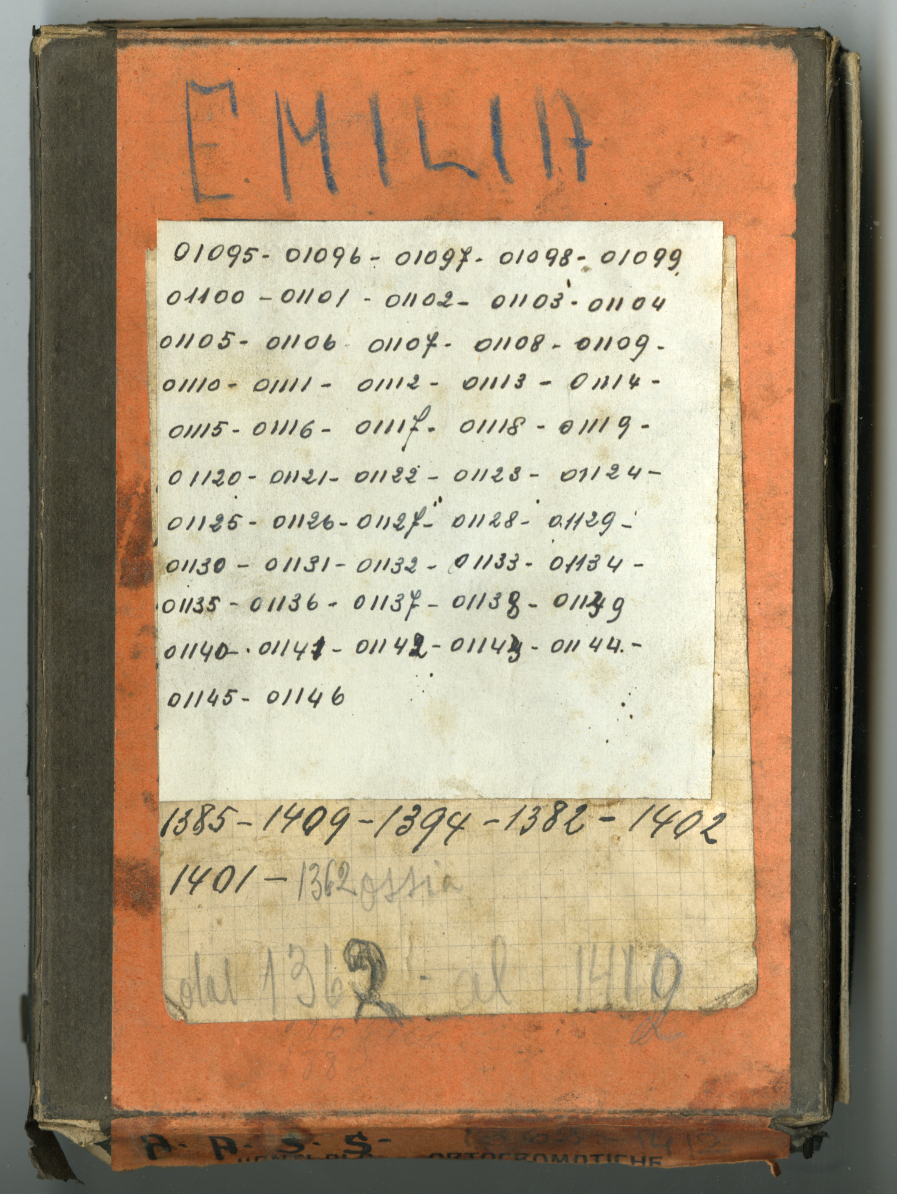 EMILIA
01095- 01096- 01097- 01098- 01099
01100 - 01101 - 01102- 01103- 01104
01105- 01106 01107- 01108- 01109-
01110- 01111- 01112- 01113- 01114-
01115- 01116- 01117- 01118- 01119-
01120- 01121- 01122- 01123- 01124-
01125- 01126- 01127- 01128- 01129-
01130- 01131- 01132- 01133- 01134-
01135- 01136- 01137- 01138- 01139
01140- 01141- 01142- 01143- 01144-
01145- 01146
1385-1409-1394-1382-1402
1401-1362 ossia
dal 1362 - al 1412
A. A. S. S.
ORTOCROMATICHE